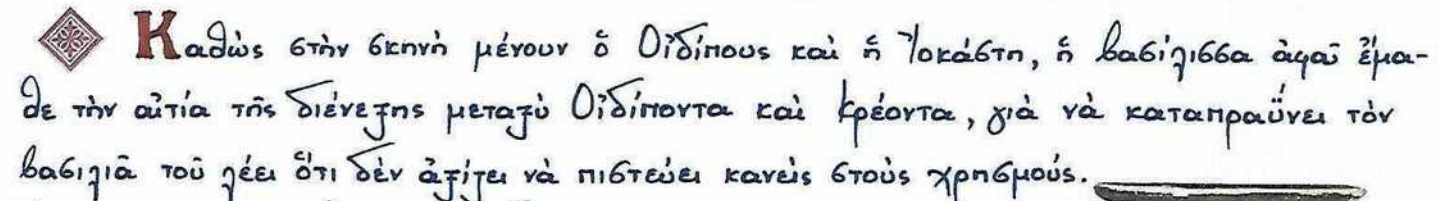 Καθὼς στὴν σκηνὴ μένουν ὅ Οἰδίπους καὶ ἥ Ἰοκάστη, ἥ βασίλισσα ἀφοῦ ἔμα-
θε τὴν αἰτία τῆς διένεξης μεταξὺ Οἰδίποντα καὶ Κρέοντα, γιὰ νὰ καταπραΰνει τὸν
βασιλιᾶ τοῦ λέει ὅτι δὲν ἀξίζει νὰ πιστεύει κανεὶς στοὺς χρησμούς.